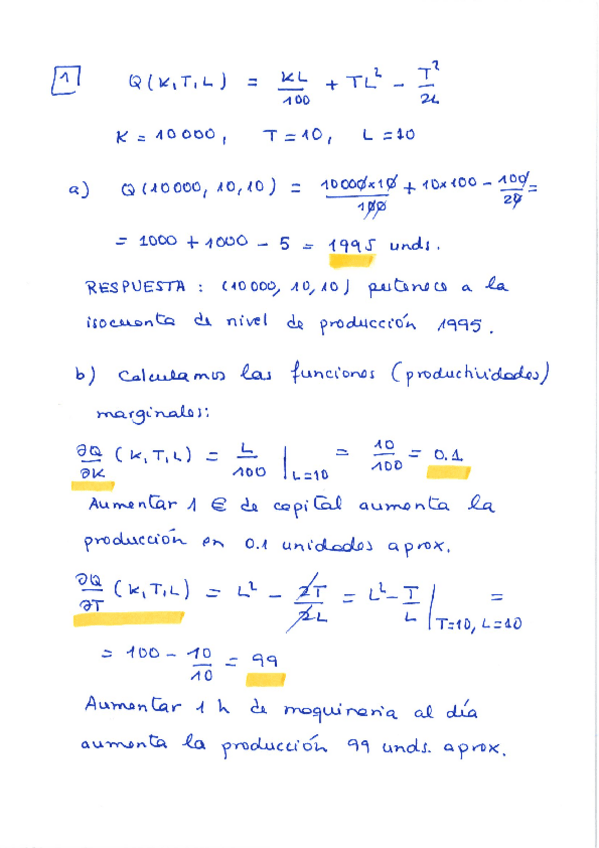 1 Q(K,T,L) = KL/100 + TL² - T²/2L
K = 10000, T = 10, L = 10
a) Q(10000, 10, 10) = 10000x10/100 + 10x100 - 100/20 =
= 1000 + 1000 - 5 = 1995 unds.
RESPUESTA : (10000, 10, 10) pertenece a la
isocuanta de nivel de producción 1995.
b) Calculamos las funciones (productividades)
marginales:
∂Q/∂K (K,T,L) = L/100 |L=10 = 10/100 = 0.1
Aumentar 1 € de capital aumenta la
producción en 0.1 unidades aprox.
∂Q/∂T (K,T,L) = L² - 2T/2L = L² - T/L |T=10, L=10 =
= 100 - 10/10 = 99
Aumentar 1 h de maquinaria al día
aumenta la producción 99 unds. aprox.